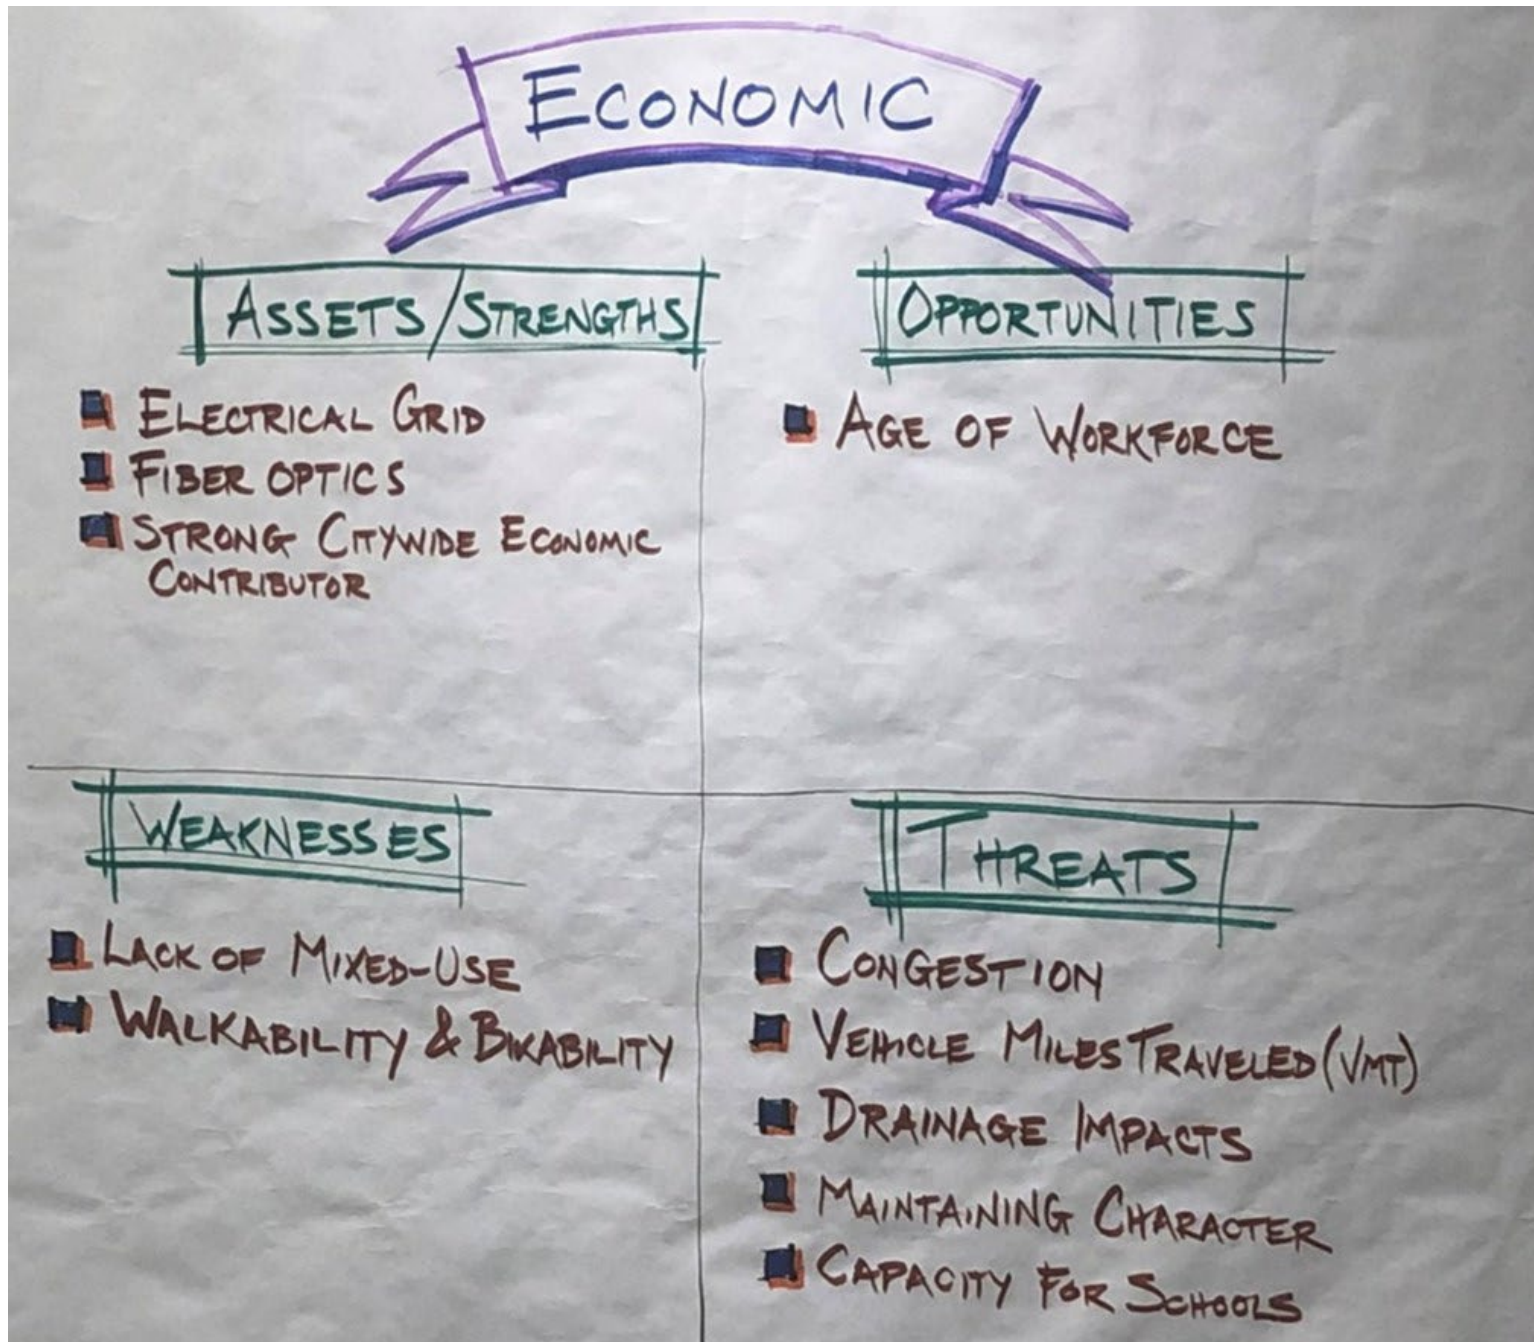 ECONOMIC
ASSETS/STRENGTHS
ELECTRICAL GRID
FIBER OPTICS
STRONG CITYWIDE ECONOMIC
CONTRIBUTOR
OPPORTUNITIES
AGE OF WORKFORCE
WEAKNESSES
LACK OF MIXED-USE
WALKABILITY & BIKABILITY
THREATS
CONGESTION
VEHICLE MILES TRAVELED (VMT)
DRAINAGE IMPACTS
MAINTAINING CHARACTER
CAPACITY FOR SCHOOLS